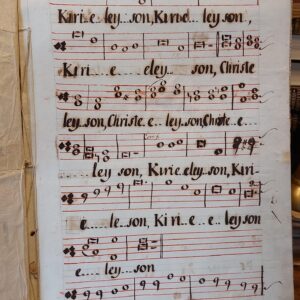 Kiri..e ley..son, Kirie...ley son.,
Kiri....e.....eley... son, Christe
ley..son, Christe.e...leyson, Christe.e...
ley son, Kirie eley son, Kiri-
e....le-son, Kiri...e...e..leyson
e......ley...son